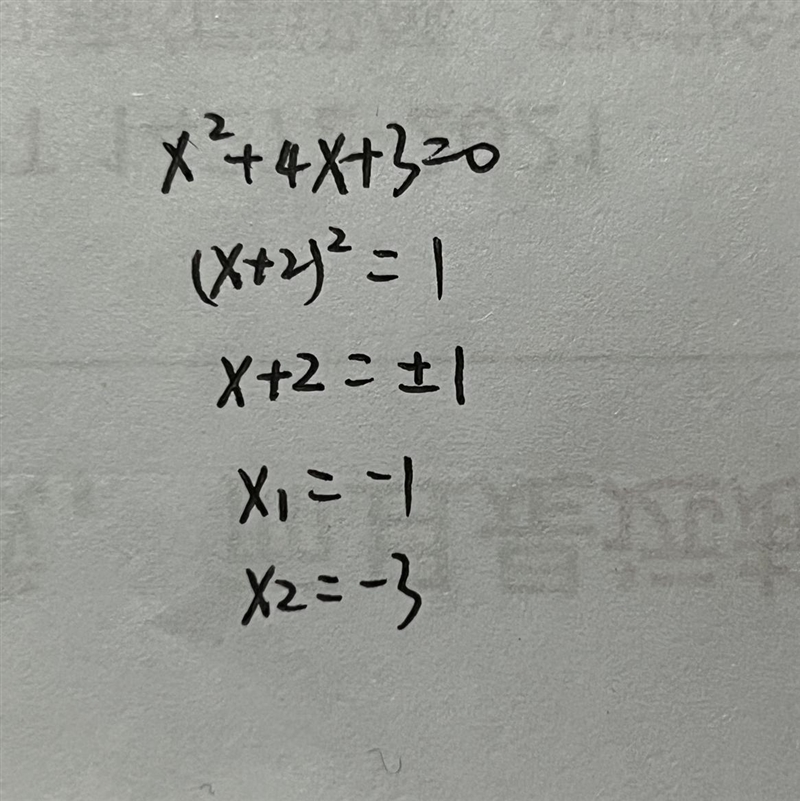 x²+4x+3=0
(x+2)²=1
x+2=±1
x₁=-1
x₂=-3